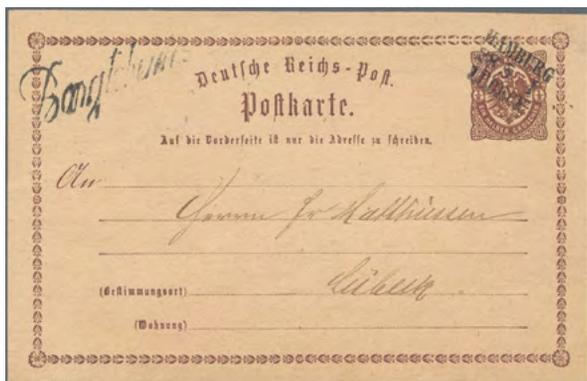 HAMBURG
Deutsche Reichs-Post.
Postkarte.
Auf die Vorderseite ist nur die Adresse zu schreiben.
An
Herrn Fr Matthiessen
Lübeck.
(Bestimmungsort)
(Wohnung)